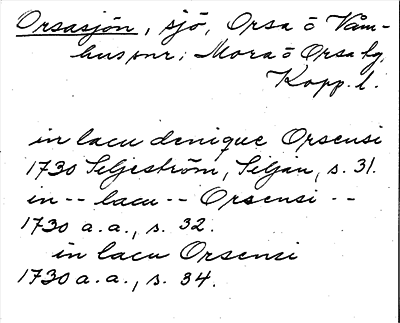 Orsasjön, sjö, Orsa o Våm-
hus snr; Mora o Orsa tg,
Kopp. l.
in lacu denique Orsensi
1730 Seljeström, Seljan, s. 31.
in -- lacu -- Orsensi --
1730 a.a., s. 32.
in lacu Orsensi
1730 a.a., s. 34.